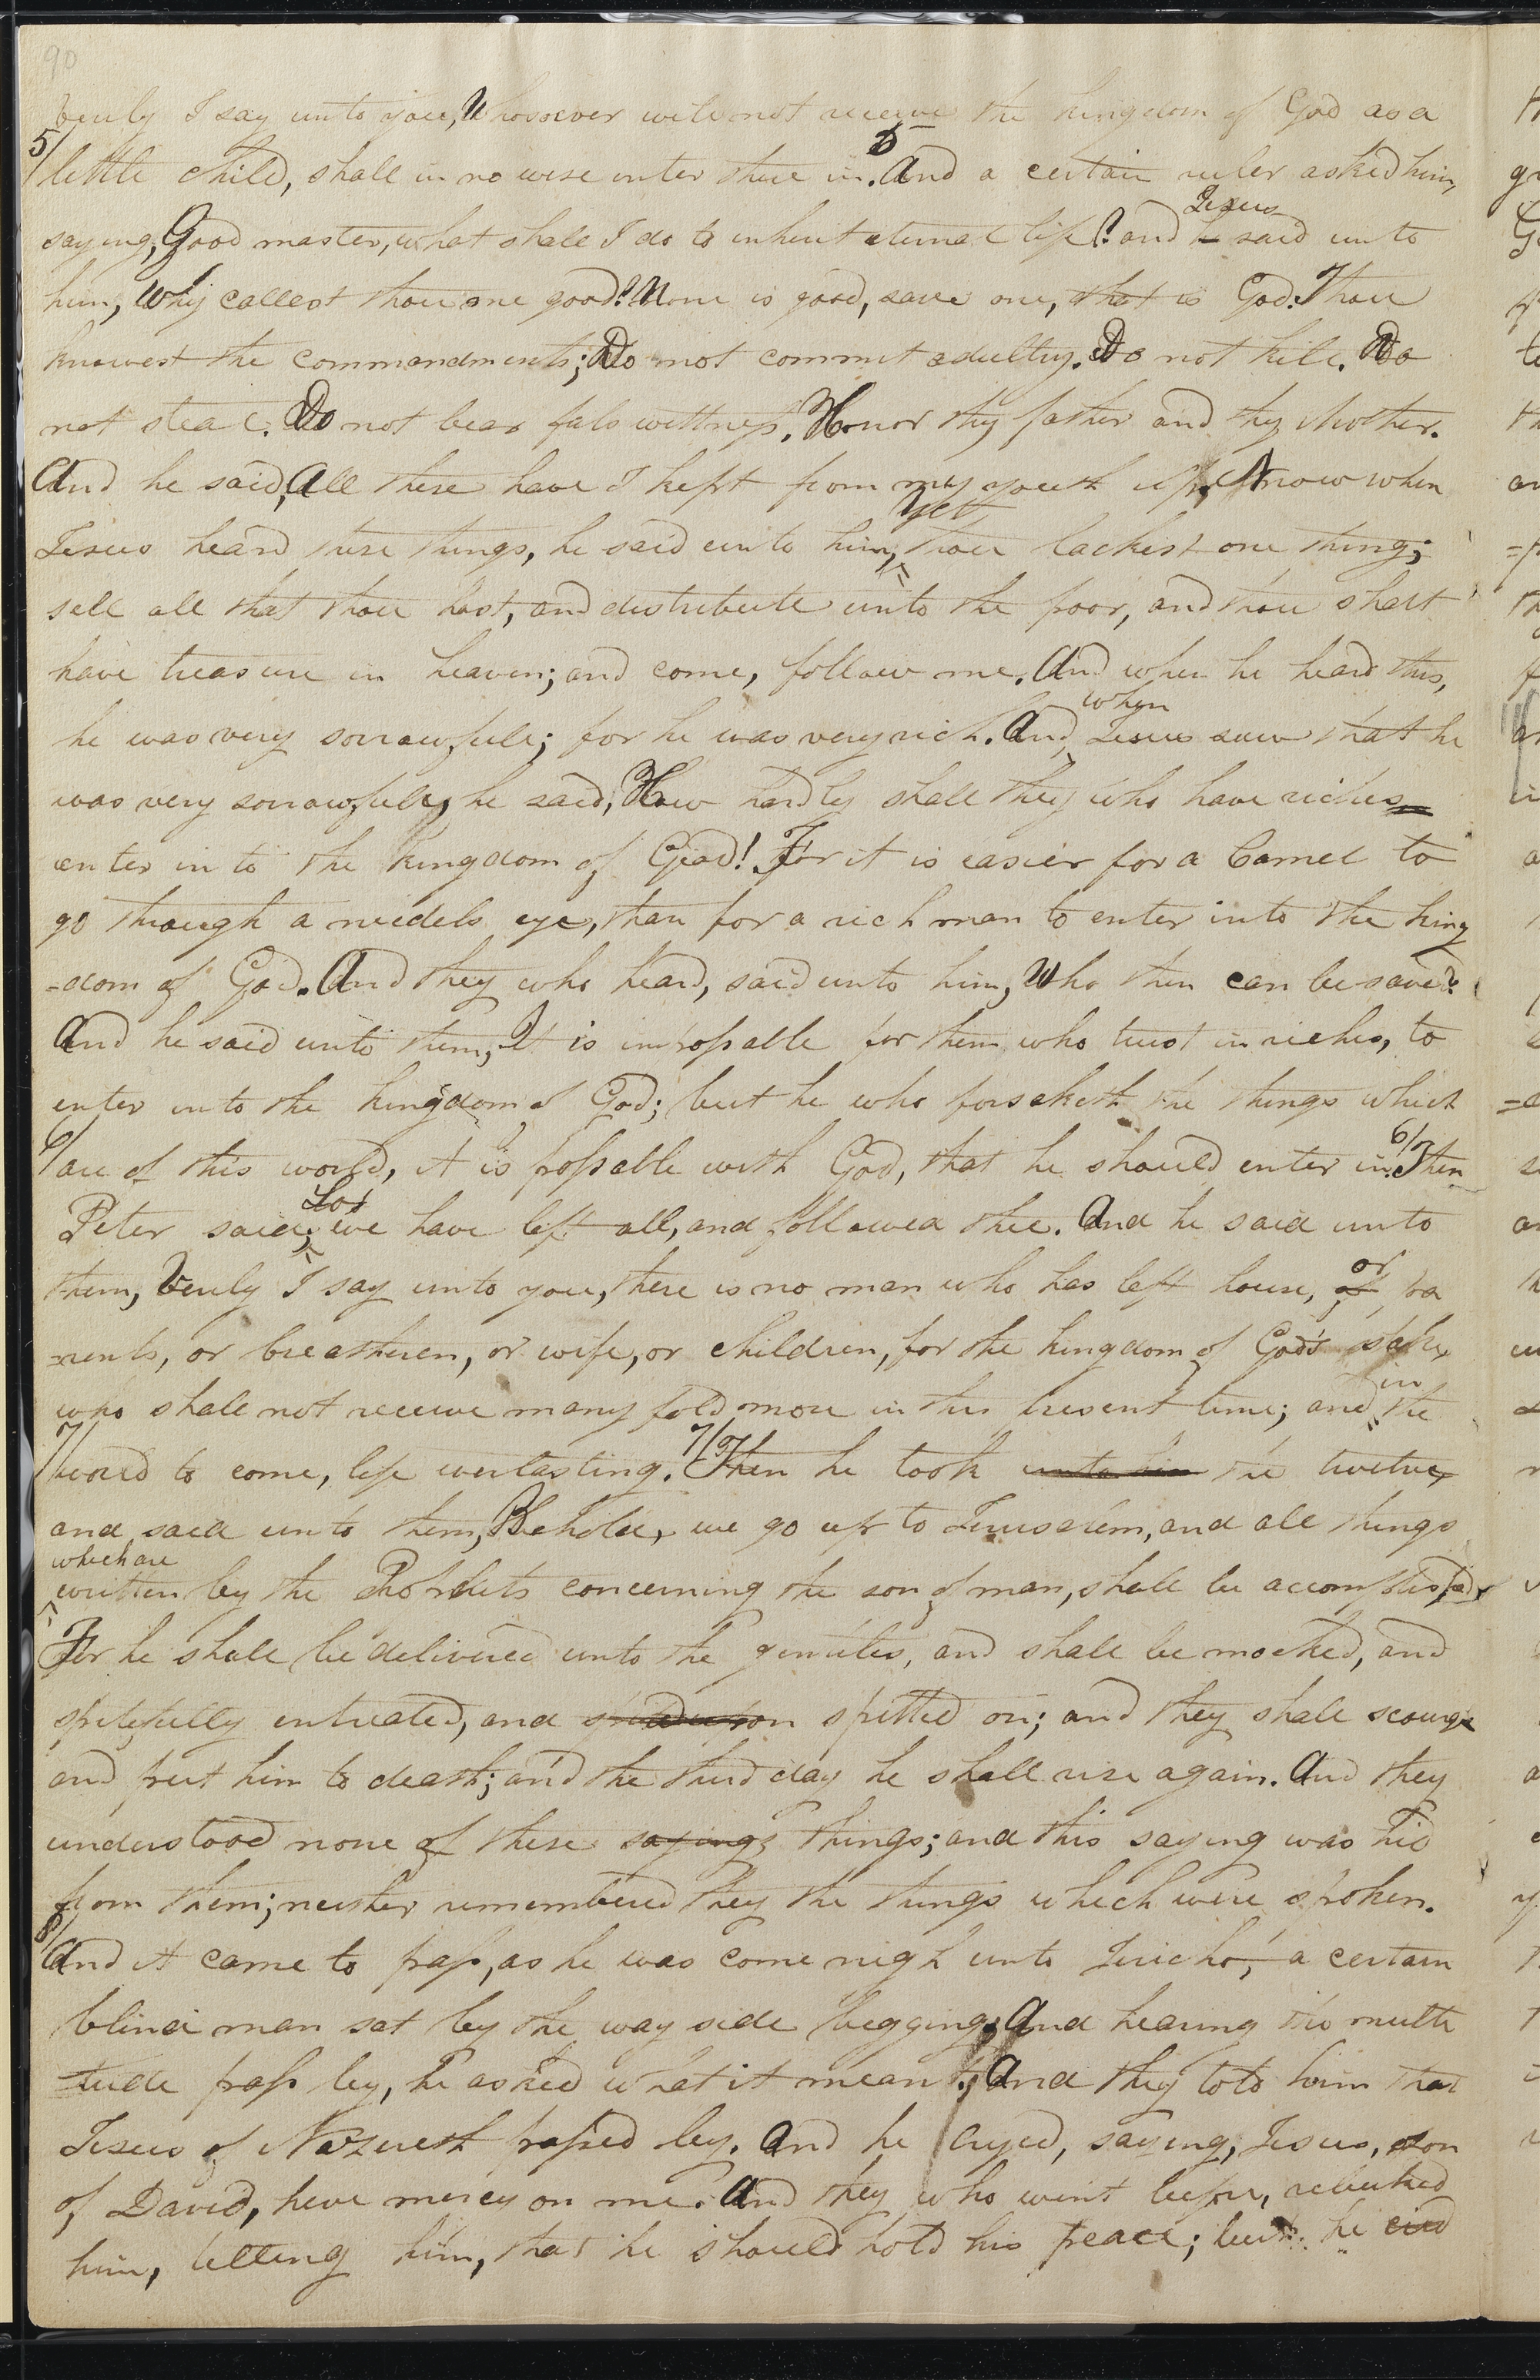 90
verily I say unto you, Whosoever will not receive the kingdom of God as a
5/ little child, shall in no wise enter there in. 5 And a certain ruler asked him,
saying, Good master, what shall I do to inherit eternal life? and he Jesus said unto
him, Why callest thou me good? None is good, save one, that is God. Thou
knowest the commandments; Do not commit adultry. Do not kill. Do
not steal. Do not bear fals wittness. Honor thy father and thy Mother.
And he said, All these have I kept from my youth up. Now when
Jesus heard these things, he said unto him, Yet thou lackest one thing;
sell all that thou hast, and distribute unto the poor, and thou shalt
have treasure in heaven; and come, follow me. And when he heard this,
he was very sorrowful; for he was very rich. And when Jesus saw that he
was very sorrowful, he said, How hardly shall they who have riches
enter in to the kingdom of God! For it is easier for a Camel to
go through a needels eye, than for a rich man to enter into the king
=dom of God. And they who heard, said unto him, Who then can be saved?
And he said unto them, It is impossable for them who trust in riches, to
enter into the kingdom of God; but he who forsaketh the things which
6/ are of this world, it is possable with God, that he should enter in. 6/ Then
Peter said, Lo, we have left all, and followed thee. And he said unto
them, Verily I say unto you, there is no man who has left house, of or pa
=rents, or breatheren, or wife, or children, for the kingdom of God's sake,
who shall not receive many fold more in this present time; and in the
7/ world to come, life everlasting. 7/ Then he took unto him the twelve,
and said unto them, Behold, we go up to Jerusalem, and all things
which are written by the Prophets concerning the son of man, shall be accomplished,
For he shall be delivered unto the gentiles, and shall be mocked, and
spitefully entreated, and spitted on; and they shall scourge
and put him to death; and the third day he shall rise again. And they
understood none of these sayings things; and this saying was hid
from them; neither remembered they the things which were spoken.
8/ And it came to pass, as he was come nigh unto Jericho, a certain
blind man sat by the way side begging, And hearing the multi
=tude pass by, he asked what it meant; And they told him that
Jesus of Nazereth passed by. And he cryed, saying, Jesus, son
of David, have mercy on me. And they who went before, rebuked
him, telling him, that he should hold his peace; but he cried